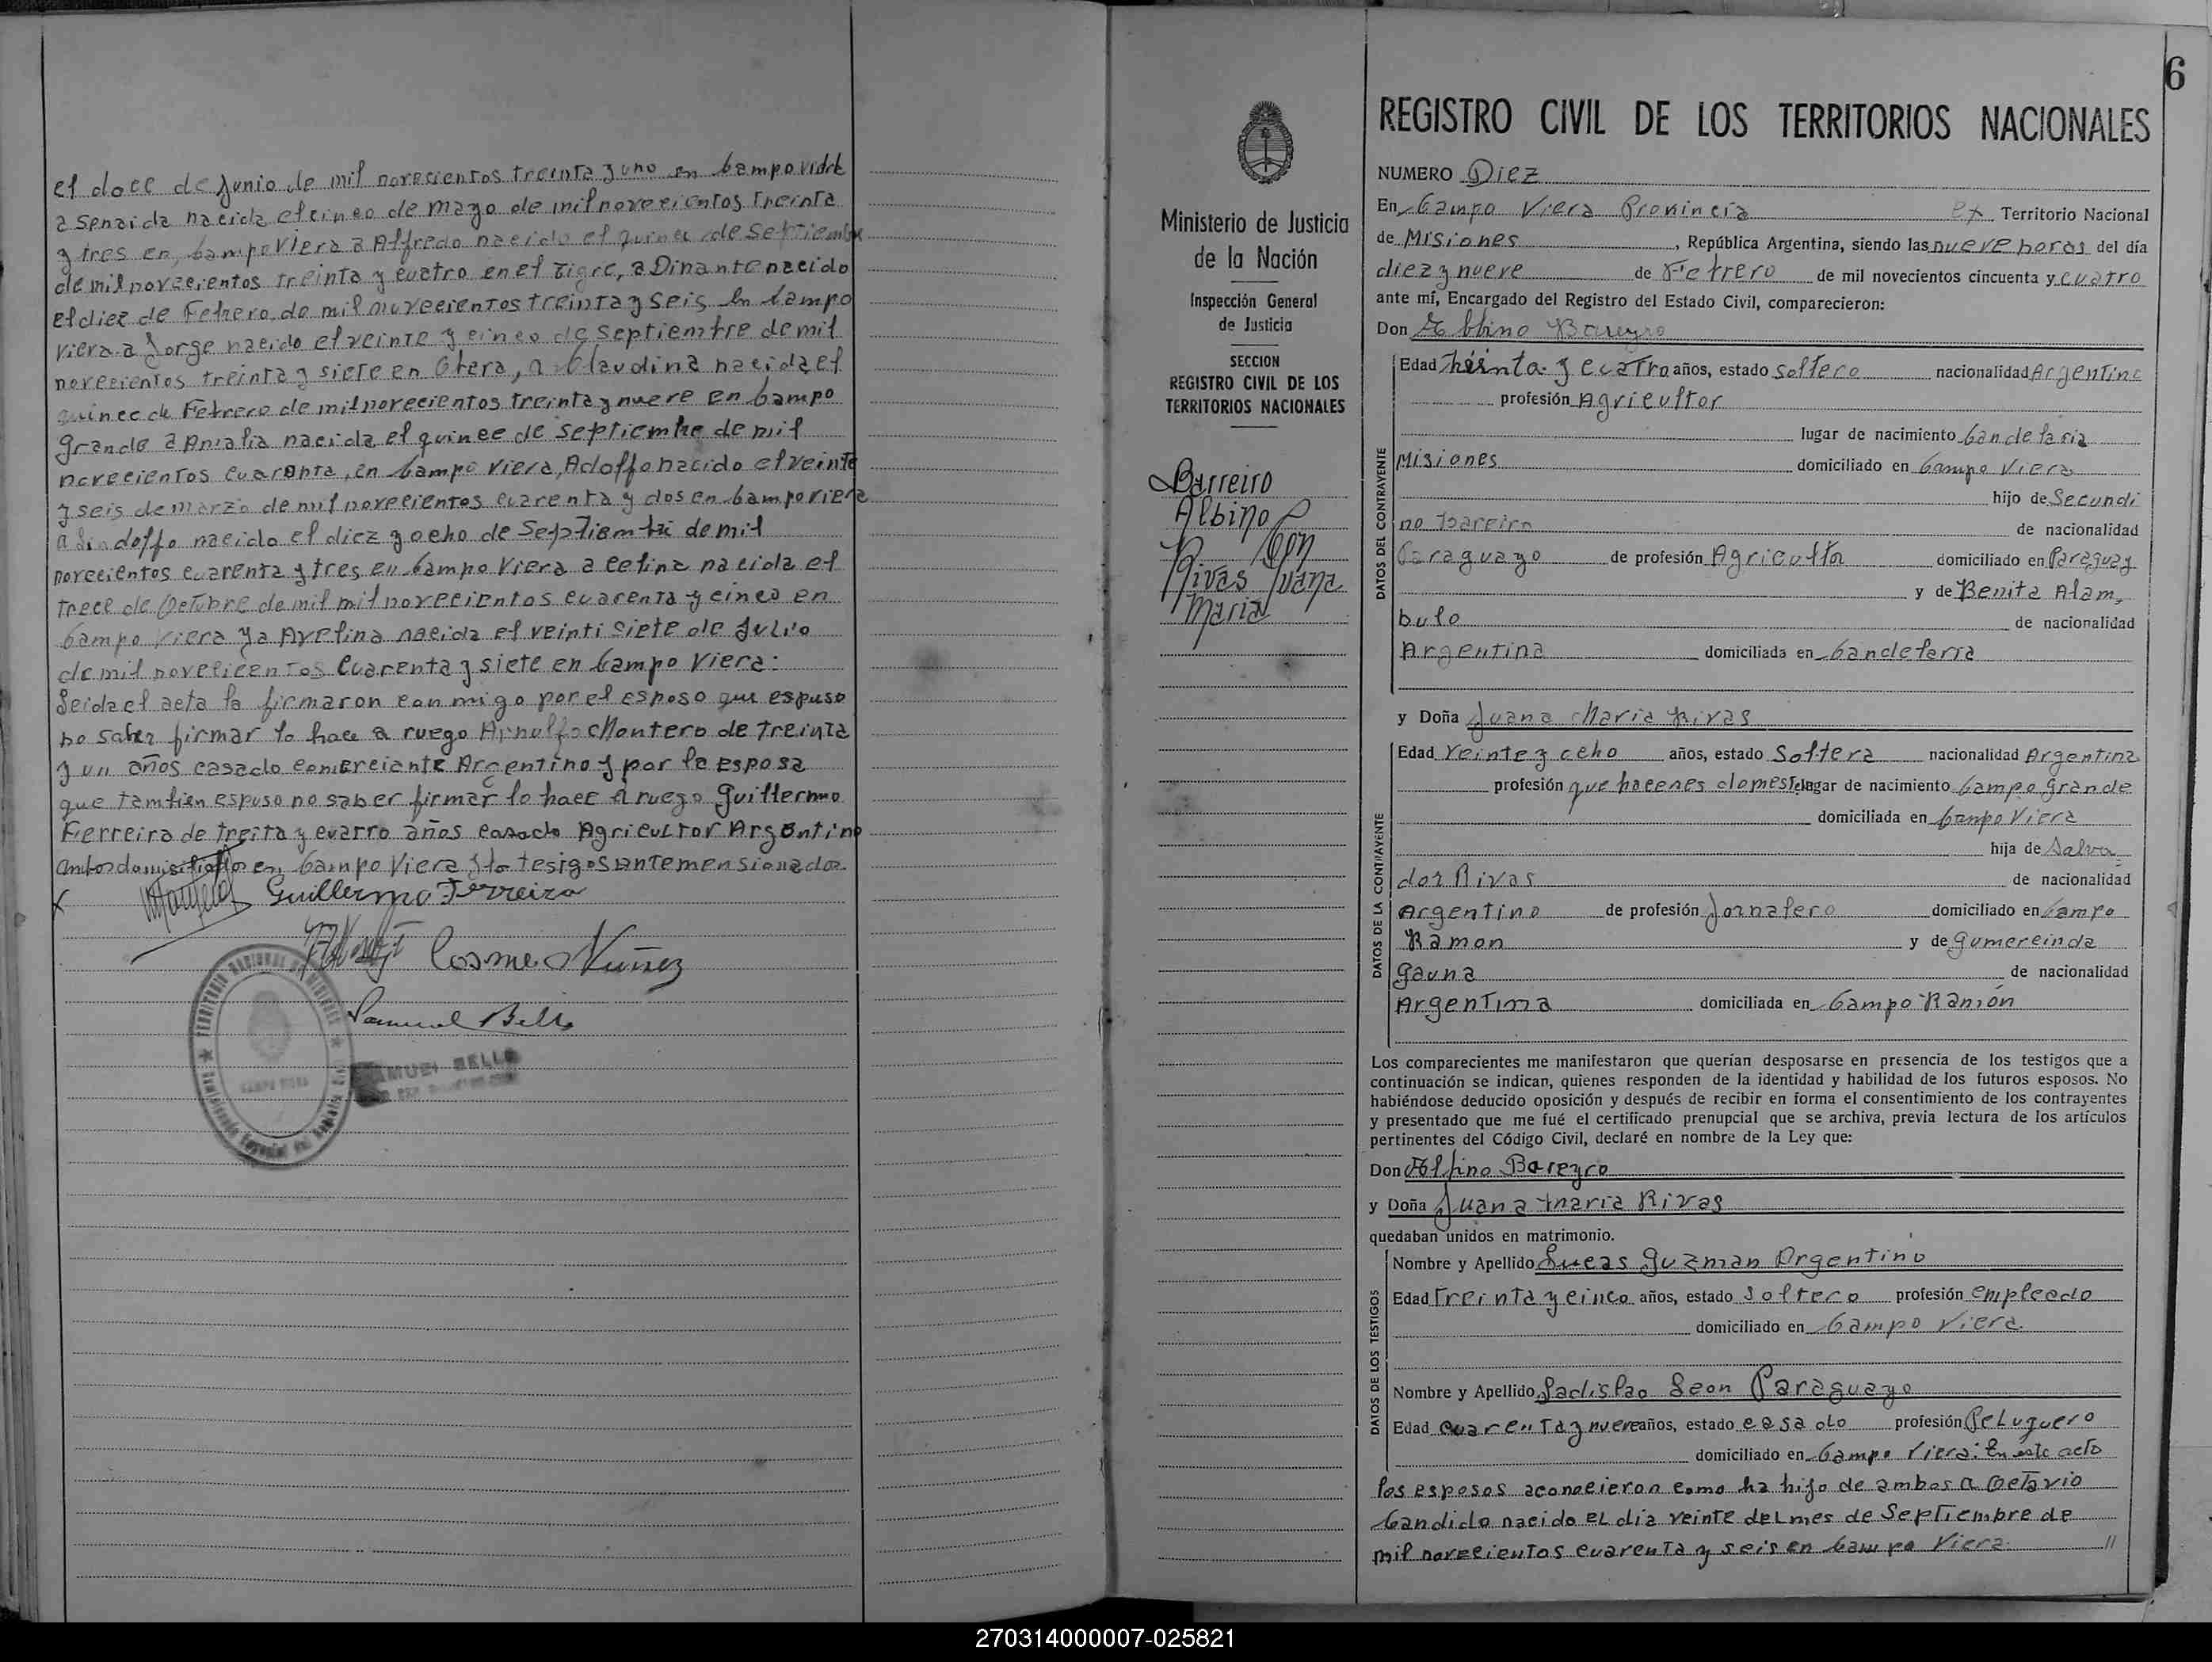 el doce de Junio de mil novecientos treinta y uno en Campo
a Senaida nacida el cinco de mayo de mil novecientos treinta
y tres en Campo Viera a Alfredo nacido el quince de Septiembre
de mil novecientos treinta y cuatro en el Tigre, a Dinante nacido
el diez de Febrero de mil novecientos treinta y seis en Campo
Viera a Jorge nacido el veinte y cinco de Septiembre de mil
novecientos treinta y siete en Obera, a Claudina nacida el
quince de Febrero de mil novecientos treinta y nueve en Campo
grande a Amalia nacida el quince de septiembre de mil
novecientos cuaranta, en Campo Viera, Adolfo nacido el veinte
y seis de marzo de mil novecientos cuarenta y dos en Campo viera
a Lindolfo nacido el diez y ocho de Septiembre de mil
novecientos cuarenta y tres en Campo Viera a Celina nacida el
trece de Octubre de mil mil novecientos cuarenta y cinco en
Campo Viera y a Avelina nacida el veinti siete de Julio
de mil novecientos cuarenta y siete en Campo Viera:
Leida el acta la firmaron conmigo por el esposo que espuso
no saber firmar lo hace a ruego Arnulfo Montero de treinta
y un años casado comerciante Argentino y por la esposa
que tambien espuso no saber firmar lo hace a ruego Guillermo
Ferreira de treita y cuatro años casado Agricultor Argentino
ambos domisiliados en Campo Viera y lo tesigos antemensionados.
Guillermo Ferreira
Cosme Nuñez
Samuel Bello
SAMUEL BELLO
6
REGISTRO CIVIL DE LOS TERRITORIOS NACIONALES
Ministerio de Justicia
de la Nación
Inspección General
de Justicia
SECCION
REGISTRO CIVIL DE LOS
TERRITORIOS NACIONALES
Barreiro
Albino
Con
Rivas Juana
Maria
NUMERO Diez
En Campo Viera Provincia ex Territorio Nacional
de Misiones, República Argentina, siendo las nueve horas del día
diez y nueve de Febrero de mil novecientos cincuenta y cuatro
ante mí, Encargado del Registro del Estado Civil, comparecieron:
Don Albino Bareyro
DATOS DEL CONTRAYENTE
Edad treinta y cuatro años, estado soltero nacionalidad Argentino
profesión Agricultor
lugar de nacimiento Candelaria
Misiones domiciliado en Campo Viera
hijo de Secundi
no Bareiro de nacionalidad
Paraguayo de profesión Agricultor domiciliado en Paraguay
y de Benita Alam,
bulo de nacionalidad
Argentina domiciliada en Candelaria
y Doña Juana Maria Rivas
DATOS DE LA CONTRAYENTE
Edad veinte y ocho años, estado Soltera nacionalidad Argentina
profesión que haceres domest. lugar de nacimiento Campo grande
domiciliada en Campo Viera
hija de Salva=
dor Rivas de nacionalidad
Argentino de profesión Jornalero domiciliado en Campo
Ramon y de Gumercinda
Gauna de nacionalidad
Argentina domiciliada en Campo Ramón
Los comparecientes me manifestaron que querían desposarse en presencia de los testigos que a
continuación se indican, quienes responden de la identidad y habilidad de los futuros esposos. No
habiéndose deducido oposición y después de recibir en forma el consentimiento de los contrayentes
y presentado que me fué el certificado prenupcial que se archiva, previa lectura de los artículos
pertinentes del Código Civil, declaré en nombre de la Ley que:
Don Albino Bareyro
y Doña Juana Maria Rivas
quedaban unidos en matrimonio.
DATOS DE LOS TESTIGOS
Nombre y Apellido Lucas Guzman Argentino
Edad treinta y cinco años, estado Soltero profesión empleado
domiciliado en Campo Viera.
Nombre y Apellido Ladislao Leon Paraguayo
Edad cuarenta y nueve años, estado casado profesión Peluquero
domiciliado en Campo Viera: En este acto
los esposos aconocieron como ha hijo de ambos a Octavio
Candido nacido el dia veinte del mes de Septiembre de
mil novecientos cuarenta y seis en Campo Viera //
270314000007-025821